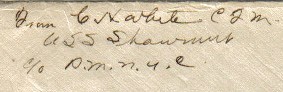 From C H White C G M.
USS Shawmut
c/o P.M.N.Y.C